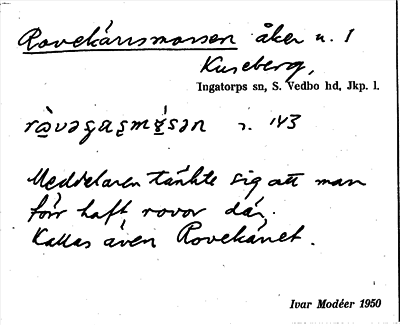 Rovekärrsmossen åker n. 1
Kuseberg,
Ingatorps sn, S. Vedbo hd, Jkp. l.
s. 143
Meddelaren tänkte sig att man
förr haft rovor där.
Kallas även Rovekärret.
Ivar Modéer 1950